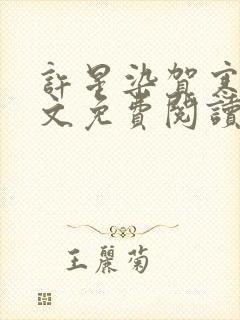 許星染賀寒
文免費閱讀
王麗菊